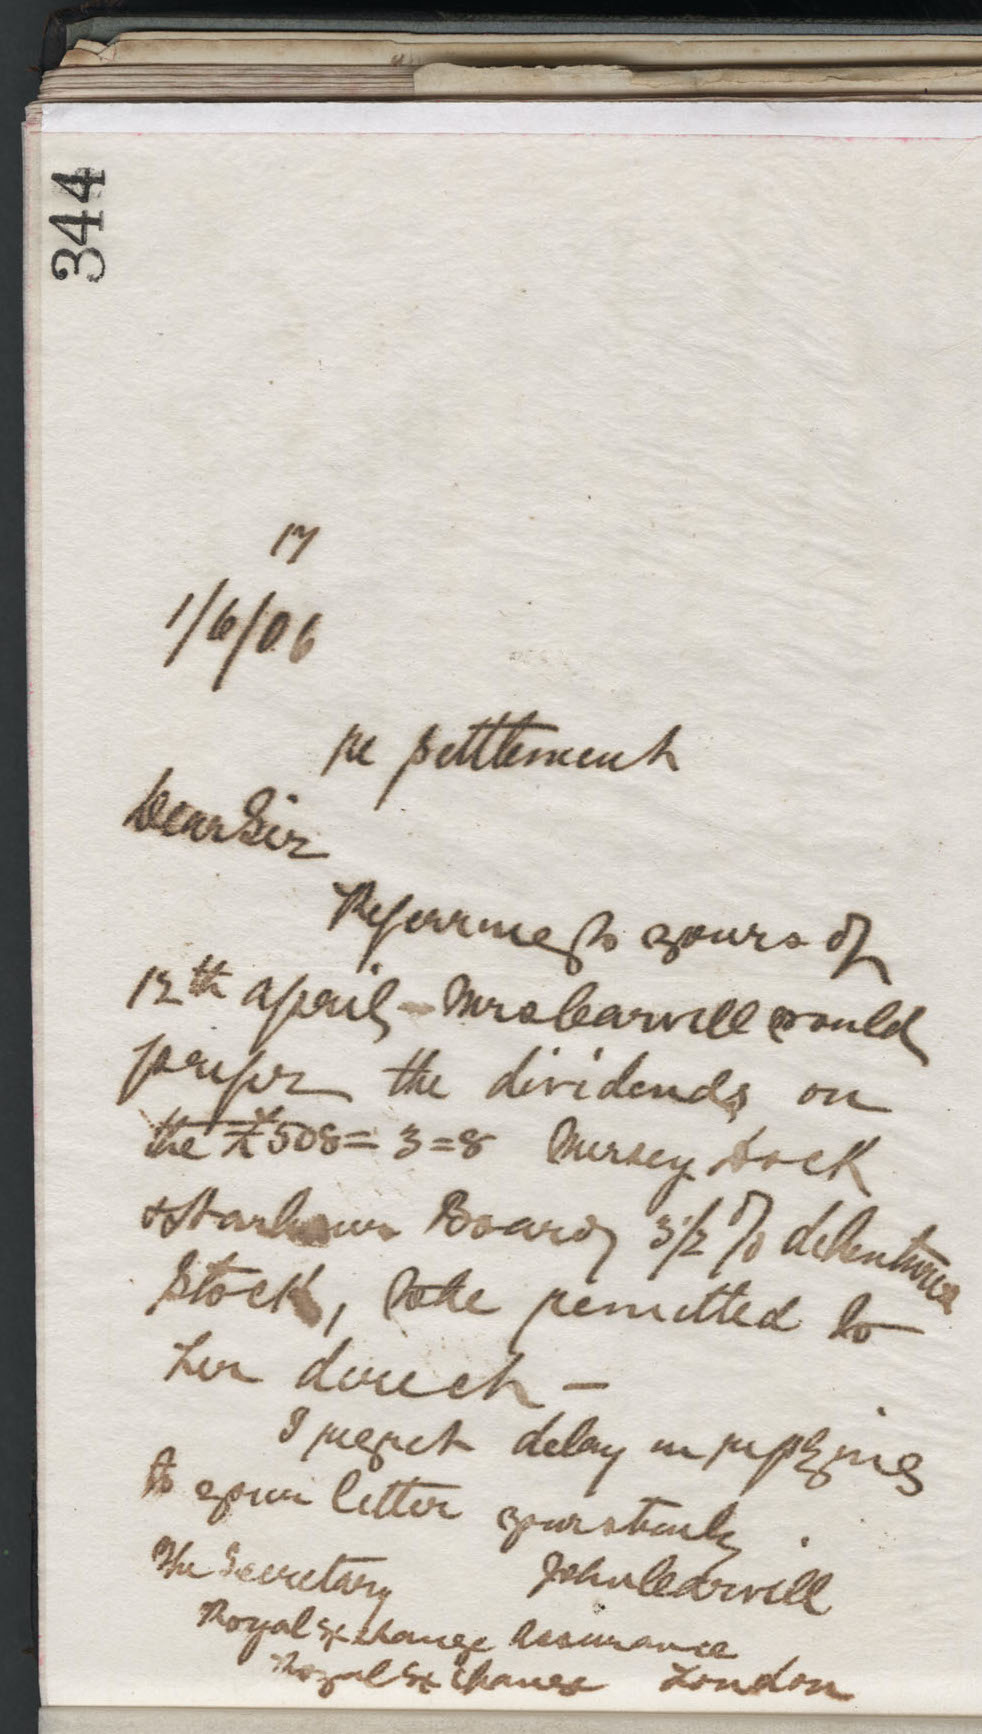 344
17
1/6/06
re settlement
Dear Sir
Referring to yours of
12th april - Mrs Carvill would
prefer the dividends on
the £508=3=8 Mersey Dock
& Harbour Board 3½% debenture
Stock, to be remitted to
her direct -
I regret delay in replying
to your letter yours truly
The Secretary John Carvill
Royal Exchange Assurance
Royal Exchange London